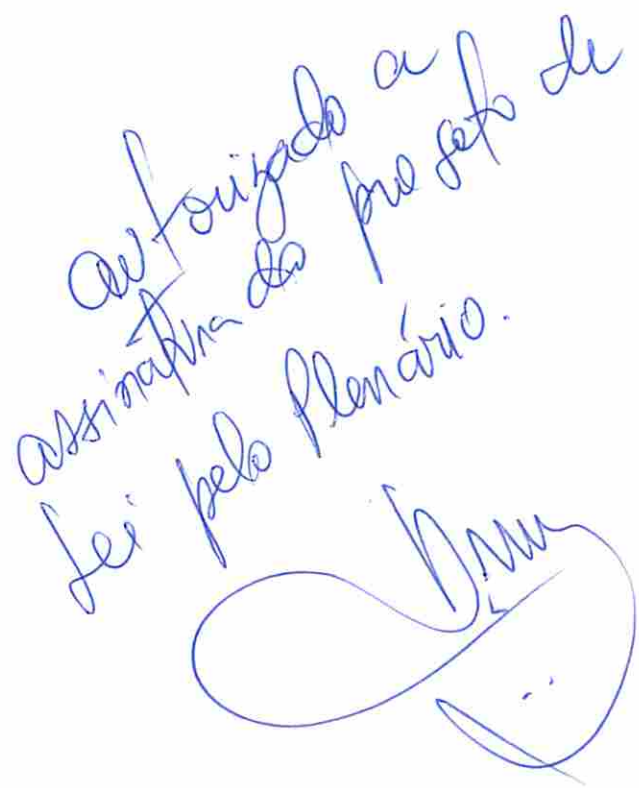 autorizado a
assinatura do projeto de
lei pelo Plenário.